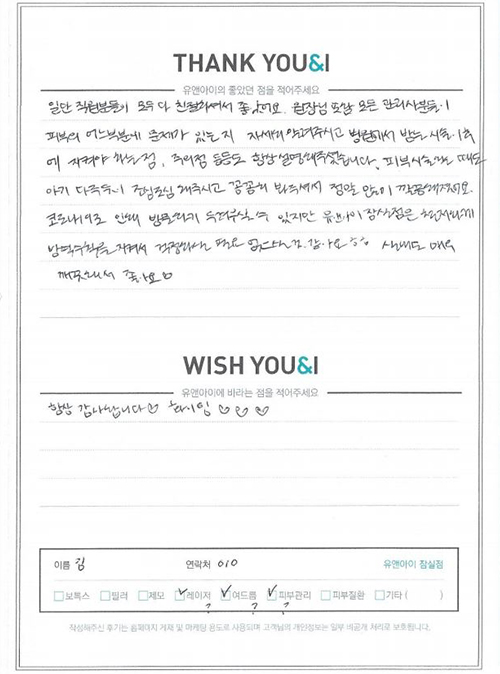 THANK YOU&I
유앤아이의 좋았던 점을 적어주세요
일단 직원분들이 모두 다 친절하셔서 좋았어요. 원장님 포함 모든 관리사분들이
피부의 어느부분에 문제가 있는지 자세히 알려주시고 병원에서 받는 시술 이후
에 지켜야 하는점, 주의점 등등도 항상 설명해주셨습니다. 피부시술 때도
아기 다루듯이 조심조심 해주시고 꼼꼼히 봐주셔서 정말 많이 깔끔해졌어요.
코로나19로 인해 방문하기 수 있지만 유앤아이 잠실점은 철저하게
방역수칙을 지켜서 걱정하실 필요 없으실것 같아요 ^^ 실내도 매우
깨끗해서 좋아요♡
WISH YOU&I
유앤아이에 바라는 점을 적어주세요
항상 감사합니다♡ 화이팅 ♡ ♡ ♡
이름 김 연락처 010 유앤아이 잠실점
보톡스 필러 제모 레이저 여드름 피부관리 피부질환 기타 ( )
? ? ?
작성해주신 후기는 홈페이지 게재 및 마케팅 용도로 사용되며 고객님의 개인정보는 일부 비공개 처리로 보호됩니다.